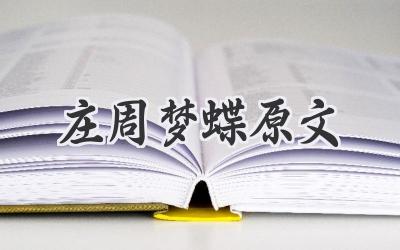 庄周梦蝶原文